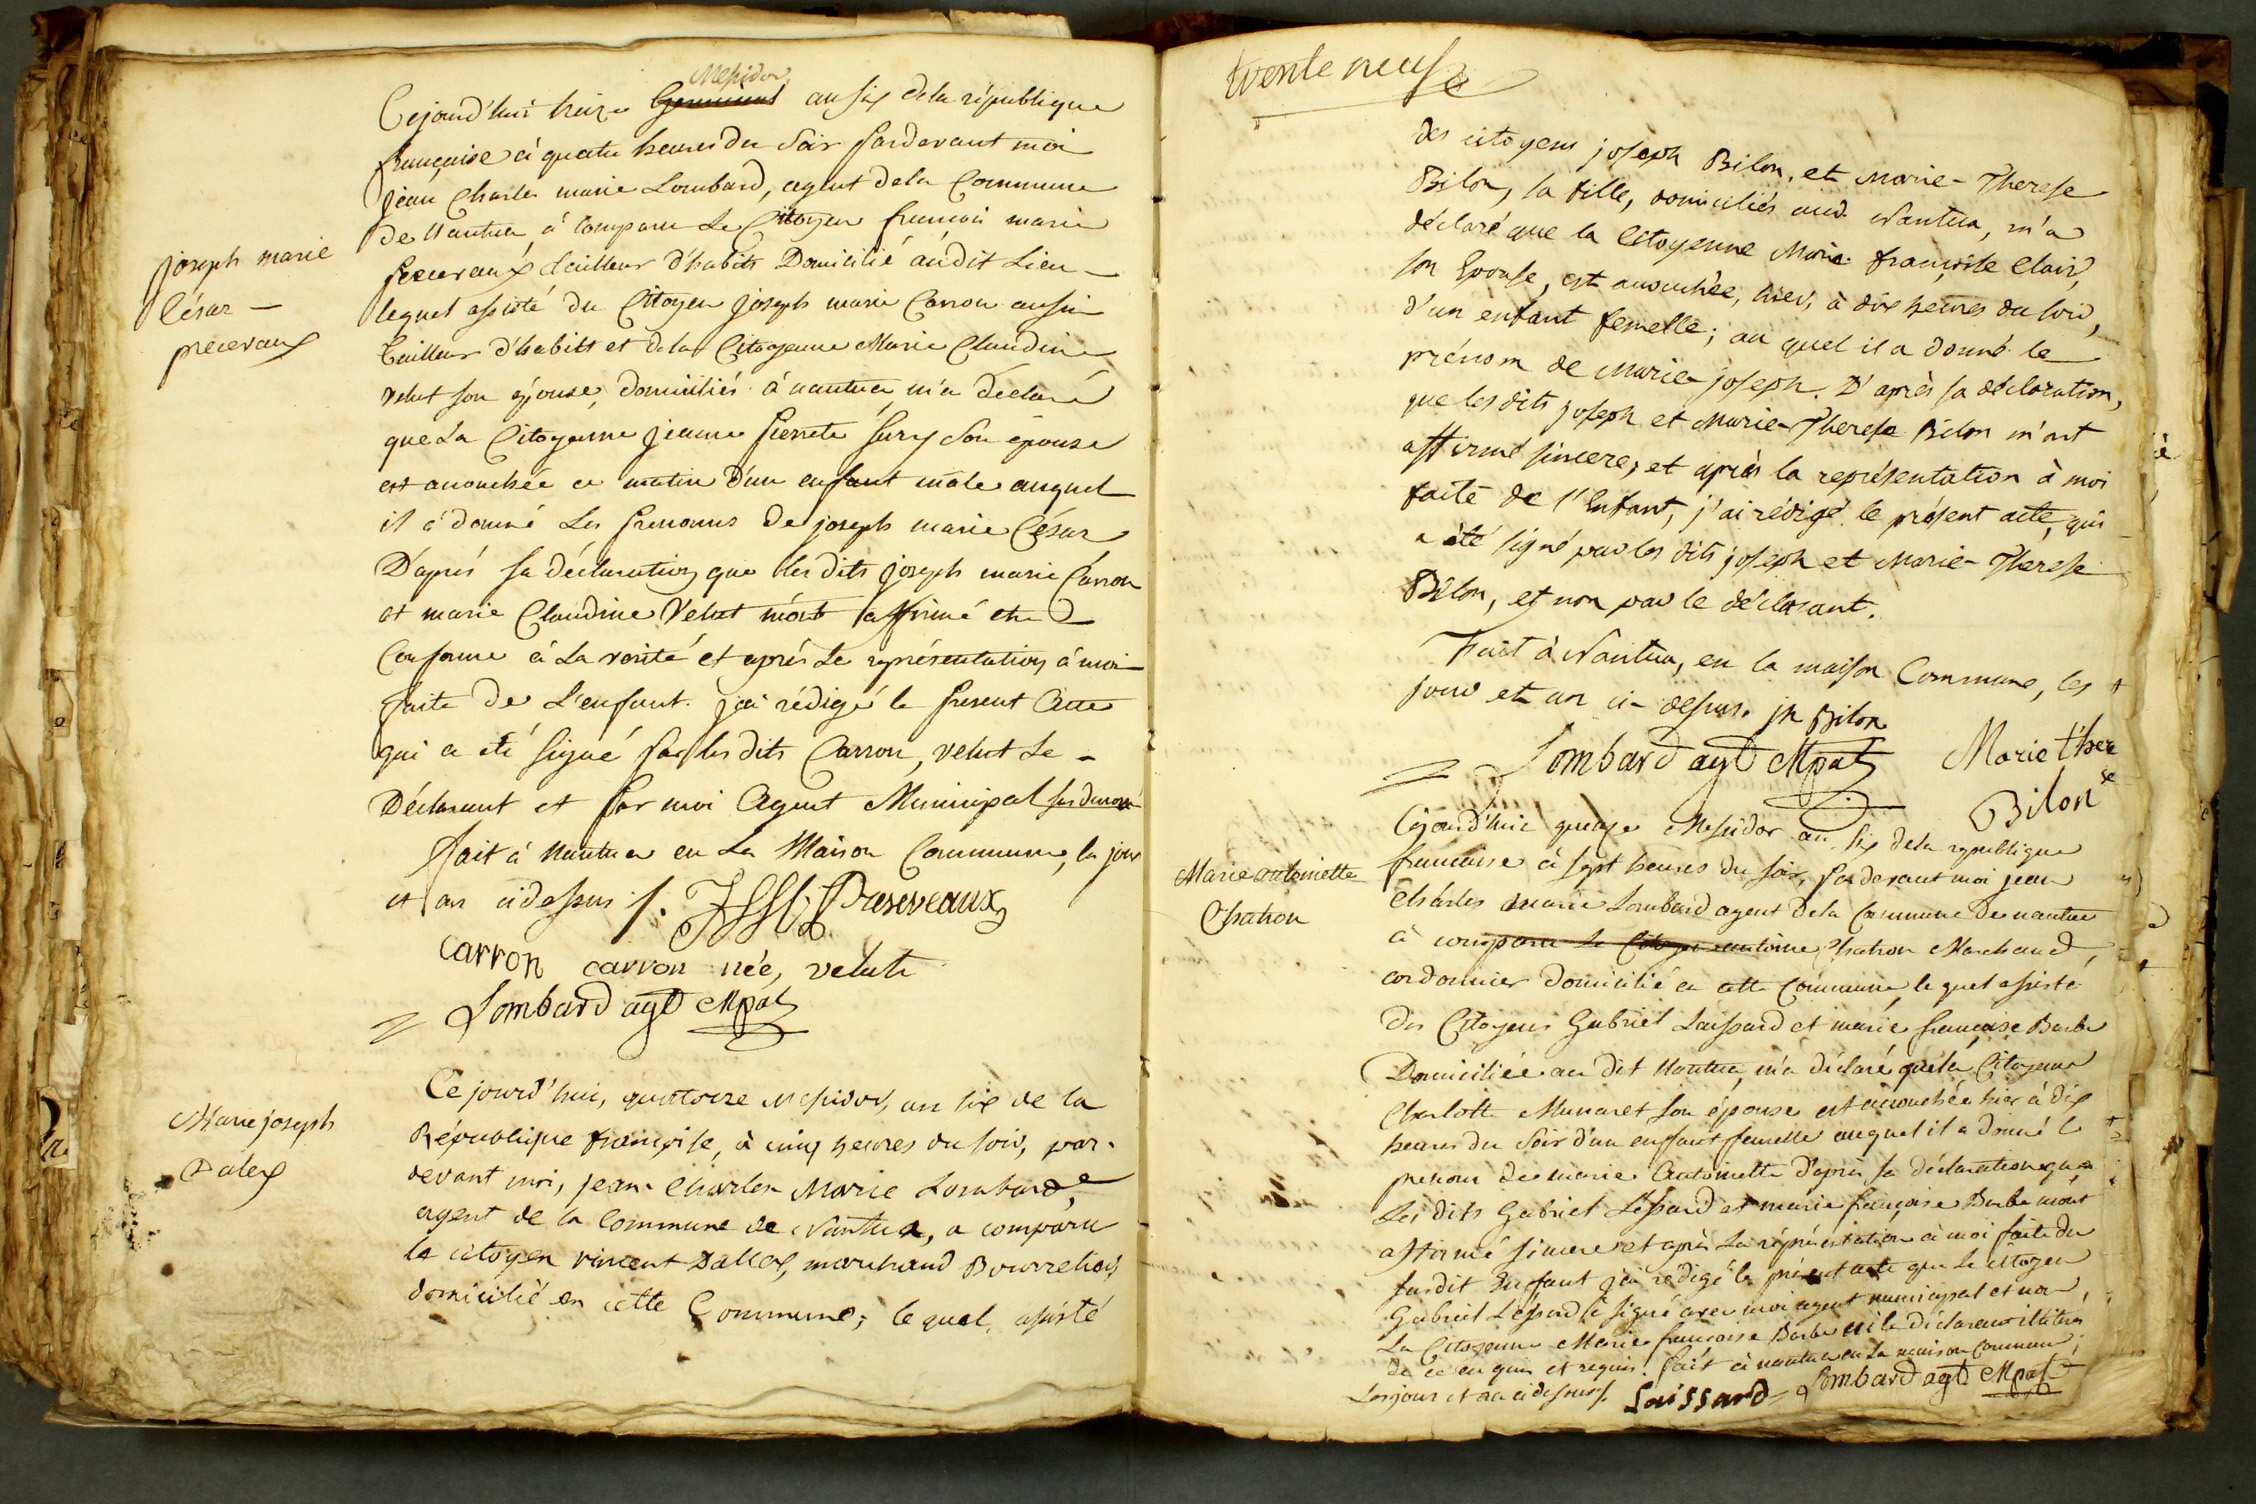 Messidor
Cejourd'hui treize Germinal an six de la république
française à quatre heures du soir pardevant moi
jean Charles marie Lombard, agent de la Commune
de Nantua à comparu Le Citoyen françois marie
preceraux tailleur d'habits Domicilié audit Lieu -
lequel assisté du Citoyen joseph marie Carron aussi
tailleur d'habits et de la Citoyenne Marie Claudine
velut son épouse, domiciliés à nantua m'a déclaré
que La Citoyenne jeanne pierrete sury son épouse
est accouchée ce matin d'un enfant mâle auquel
il à donné Les prenoms de joseph marie César
D'après sa déclaration que les dits joseph marie Carron
et marie Claudine Velut m'ont affirmé etre
Conforme à La verité et après Le représentation à moi
faite de L'enfant. j'ai rédigé le present Acte
qui a été signé par les dits Carron, velut Le -
Déclarant et par moi Agent Municipal susdenommé
fait à Nantua en La Maison Commune, les jour
et an cidessus /. Preseveaux
carron carron née, velut
Lombard agt Mpal
joseph marie
César -
preceraux
Ce jourd'hui, quatorze Messidor, an six de la
République françoise, à cinq heures du soir, par-
devant moi, jean-Charles-Marie Lombard,
agent de la Commune de Nantua, a comparu
le citoyen vincent Dallex, marchand Bourrelier,
domicilié en cette Commune; le quel, assisté
Marie joseph
Dalex
trente neuf
des citoyens joseph Bilon, et Marie-Therese
Bilon, sa fille, domiciliés aud. Nantua, m'a
déclaré que la Citoyenne Marie françoise Clair,
son Epouse, est accouchée, hier, à dix heures du soir,
d'un enfant femelle; au quel il a donné le
prénom de Marie-joseph. D'après sa déclaration,
que les dits joseph et Marie-Therese Bilon m'ont
affirmé sincere, et après la représentation à moi
faite de l'Enfant, j'ai rédigé le présent acte, qui
a été signé par les dits joseph et Marie-Therese
Bilon, et non par le déclarant.
Fait à Nantua, en la maison Commune, les
jour et an ci-dessus. jh Bilon
Lombard agt Mpal Marie therese
Bilon
Cejourd'hui quinze Messidor an six de la republique
francaise à sept heures du soir, pardevant moi jean
Charles marie Lombard agent de la Commune de nantua
à comparu le Citoyen antoine Chatron Marchand
cordonnier domicilié en cette Commune, le quel assisté
des Citoyens Gabriel Laissard et marie françoise Barbe
Domiciliée au dit Nantua, m'a déclaré que la Citoyenne
Charlotte Munaret son épouse est accouchée hier à dix
heures du soir d'un enfant femelle auquel il a donné le
prenom de marie Antoinette D'après sa déclaration que
Les dits Gabriel Lessard et marie françoise Barbe mont
affirmé sincere et après La réprésentation à moi faite du
susdit Enfant j'ai rédigé le présent acte que Le citoyen
Gabriel Lessard a signé avec moi agent municipal et non
La Citoyenne Marie françoise Barbe ni le déclarant illitéres
de ce enquis et requis. fait à nantua en La maison Commune
Les jour et an cidessus /. Laissard Lombard agt Mpal
Marie antoinette
Chatron